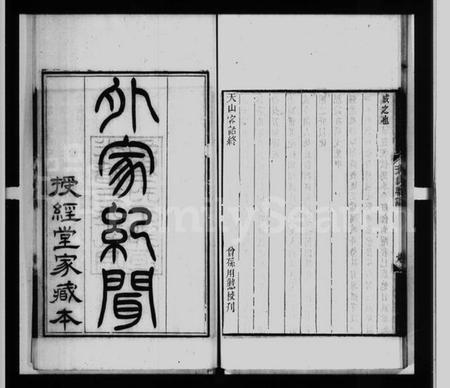 威之地
天山客話終
曾孫用懃校刋
外家紀聞
授經堂家藏本
FamilySearch